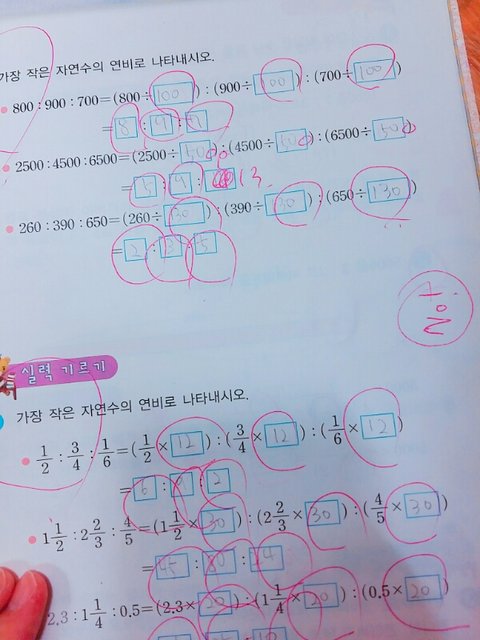 가장 작은 자연수의 연비로 나타내시오.
800 : 900 : 700 = (800÷100) : (900÷100) : (700÷100)
= 8 : 9 : 7
2500 : 4500 : 6500 = (2500÷500) : (4500÷500) : (6500÷500)
= 5 : 9 : 13
260 : 390 : 650 = (260÷130) : (390÷130) : (650÷130)
= 2 : 3 : 5
실력 기르기
가장 작은 자연수의 연비로 나타내시오.
1/2 : 3/4 : 1/6 = (1/2 × 12) : (3/4 × 12) : (1/6 × 12)
= 6 : 9 : 2
1 1/2 : 2 2/3 : 4/5 = (1 1/2 × 30) : (2 2/3 × 30) : (4/5 × 30)
= 45 : 80 : 24
2.3 : 1 1/4 : 0.5 = (2.3 × 20) : (1 1/4 × 20) : (0.5 × 20)